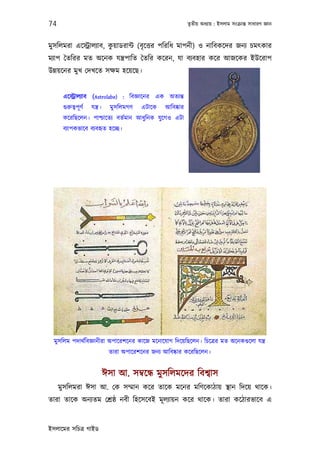 74
তৃতীয় অধ্যায় : ইসলাম সংক্রান্ত সাধারণ জ্ঞান
মুসলিমরা এস্ট্রোল্যাব, কুয়াডরান্ট (বৃত্তের পরিধি মাপনী) ও নাবিকদের জন্য চমৎকার
ম্যাপ তৈরির মত অনেক যন্ত্রপাতি তৈরি করেন, যা ব্যবহার করে আজকের ইউরোপ
উন্নয়নের মুখ দেখতে সক্ষম হয়েছে।
এস্ট্রোল্যাব (Astrolabe) : বিজ্ঞানের এক অত্যন্ত
গুরুত্বপূর্ণ যন্ত্র। মুসলিমগণ এটাকে আবিষ্কার
করেছিলেন। পাশ্চাত্যে বর্তমান আধুনিক যুগেও এটা
ব্যাপকভাবে ব্যবহৃত হচ্ছে।
মুসলিম পদার্থবিজ্ঞানীরা অপারেশনের কাজে মনোযোগ দিয়েছিলেন। চিত্রের মত অনেকগুলো যন্ত্র
তারা অপারেশনের জন্য আবিষ্কার করেছিলেন।
ঈসা আ. সম্বন্ধে মুসলিমদের বিশ্বাস
মুসলিমরা ঈসা আ. কে সম্মান করে তাকে মনের মণিকোঠায় স্থান দিয়ে থাকে।
তারা তাকে অন্যতম শ্রেষ্ঠ নবী হিসেবেই মূল্যায়ন করে থাকে। তারা কঠোরভাবে এ
ইসলামের সচিত্র গাইড